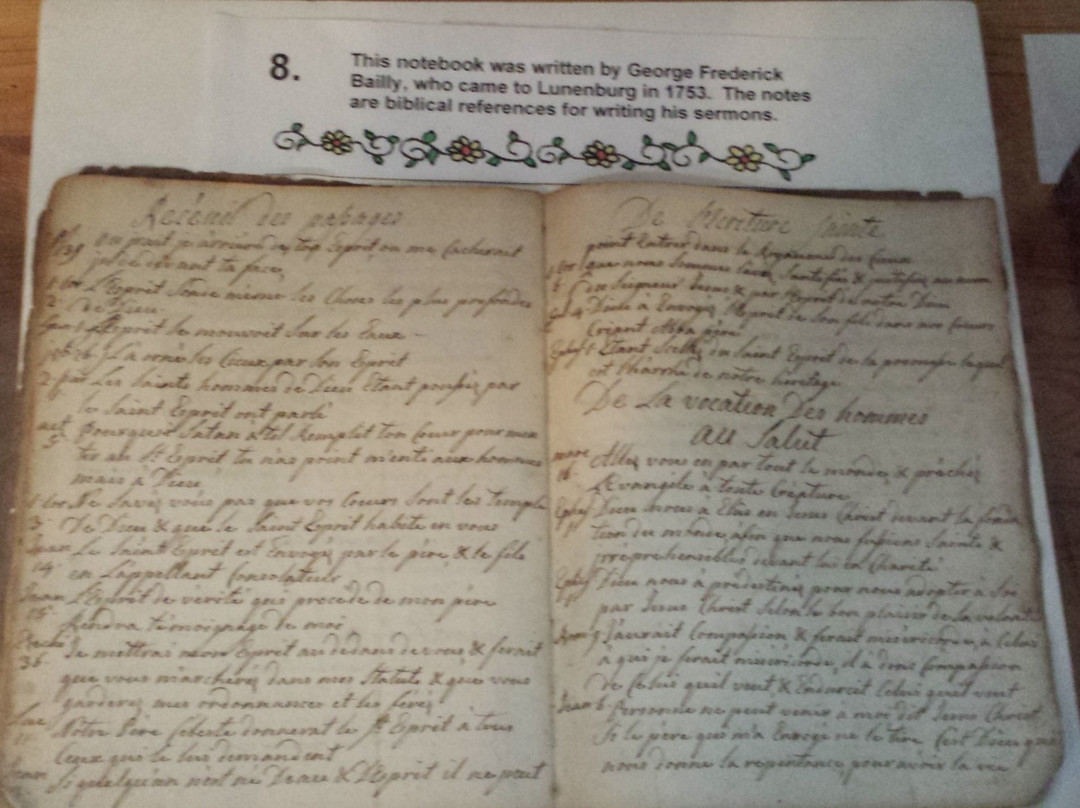 8.
This notebook was written by George Frederick
Bailly, who came to Lunenburg in 1753. The notes
are biblical references for writing his sermons.
Recéuil des pasages
139 Ou puut je arriere de ton Esprit, ou me Cacherait
je de devant ta face
1 Cor L'Esprit Sonde mesme les Choses les plus profondes
2 De Dieu
L'Esprit se mouvoit Sur les Eaux
job 26 Il a orné les Cieux par Son Esprit
2 pier Les Saints hommes de Dieu Etant poussez par
le Saint Esprit ont parlé
act Pourquoi Satan a tel Remplit ton Coeur pour men
5 tir au St Esprit tu n'as point menti aux hommes
mais à Dieu
1 Cor Ne Savés vous pas que vos Coeurs Sont les Temple
3 De Dieu & que le Saint Esprit habite en vous
Jean Le Saint Esprit est Envoyé par le père & le fils
14 en L'appellant Consolateur
Jean L'Esprit de verité qui procede de mon père
15 Rendra témoignage de moi
36 Je mettrai mon Esprit au dedans de vous & ferait
que vous marcherés dans mes Statuts & que vous
garderez mes ordonnances et les ferés
Luc Notre Père Celeste donnerat le St Esprit à tous
11 Ceux qui le lui demandent
Jean Si quelqu'un nest né Deau & L'Esprit il ne peut
De Lecriture Sainte
point Entrer dans le Royaume des Cieux
1 Cor que nous Sommes lavez Sanctifiés & justifiés au nom
6 Du Seigneur Jesus & par l'Esprit de notre Dieu
Gal 4 Dieu à Envoyé l'Esprit de Son fils dans nos Coeurs
Criant Abba père
Ephes 1 Etant Scellés du Saint Esprit de la promesse lequel
est l'harrhe de notre héritage
De La vocation Des hommes
au Salut
marc Allez vous en par tout le monde, & préchés
16 L'Evangile à toute Créature
Ephes Dieu nous à Elus en Jesus Christ devant la fonda
tion du monde, afin que nous fussions Saints &
irreprehensibles devant lui en Charité
Ephes Dieu nous à prédestinés pour nous adopter à Soi
par Jesus Christ Selon le bon plaisir de Sa volonté
Rom 9 J'aurait Compassion & ferait misericorde à Celui
à qui je ferait misericorde, il a donc Compassion
de Celui quil veut & Endurcit Celui quil veut
Jean 6 Personne ne peut venir à moi dit Jesus Christ
Si le père qui m'a Envoyé ne le tire C'est Dieu qui
nous donne la repentance, pour avoir la vie